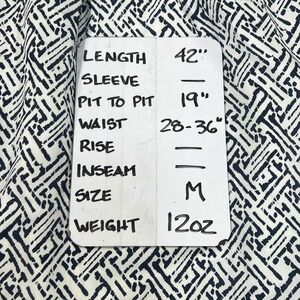 LENGTH 42"
SLEEVE —
PIT TO PIT 19"
WAIST 28-36"
RISE —
INSEAM —
SIZE M
WEIGHT 12oz